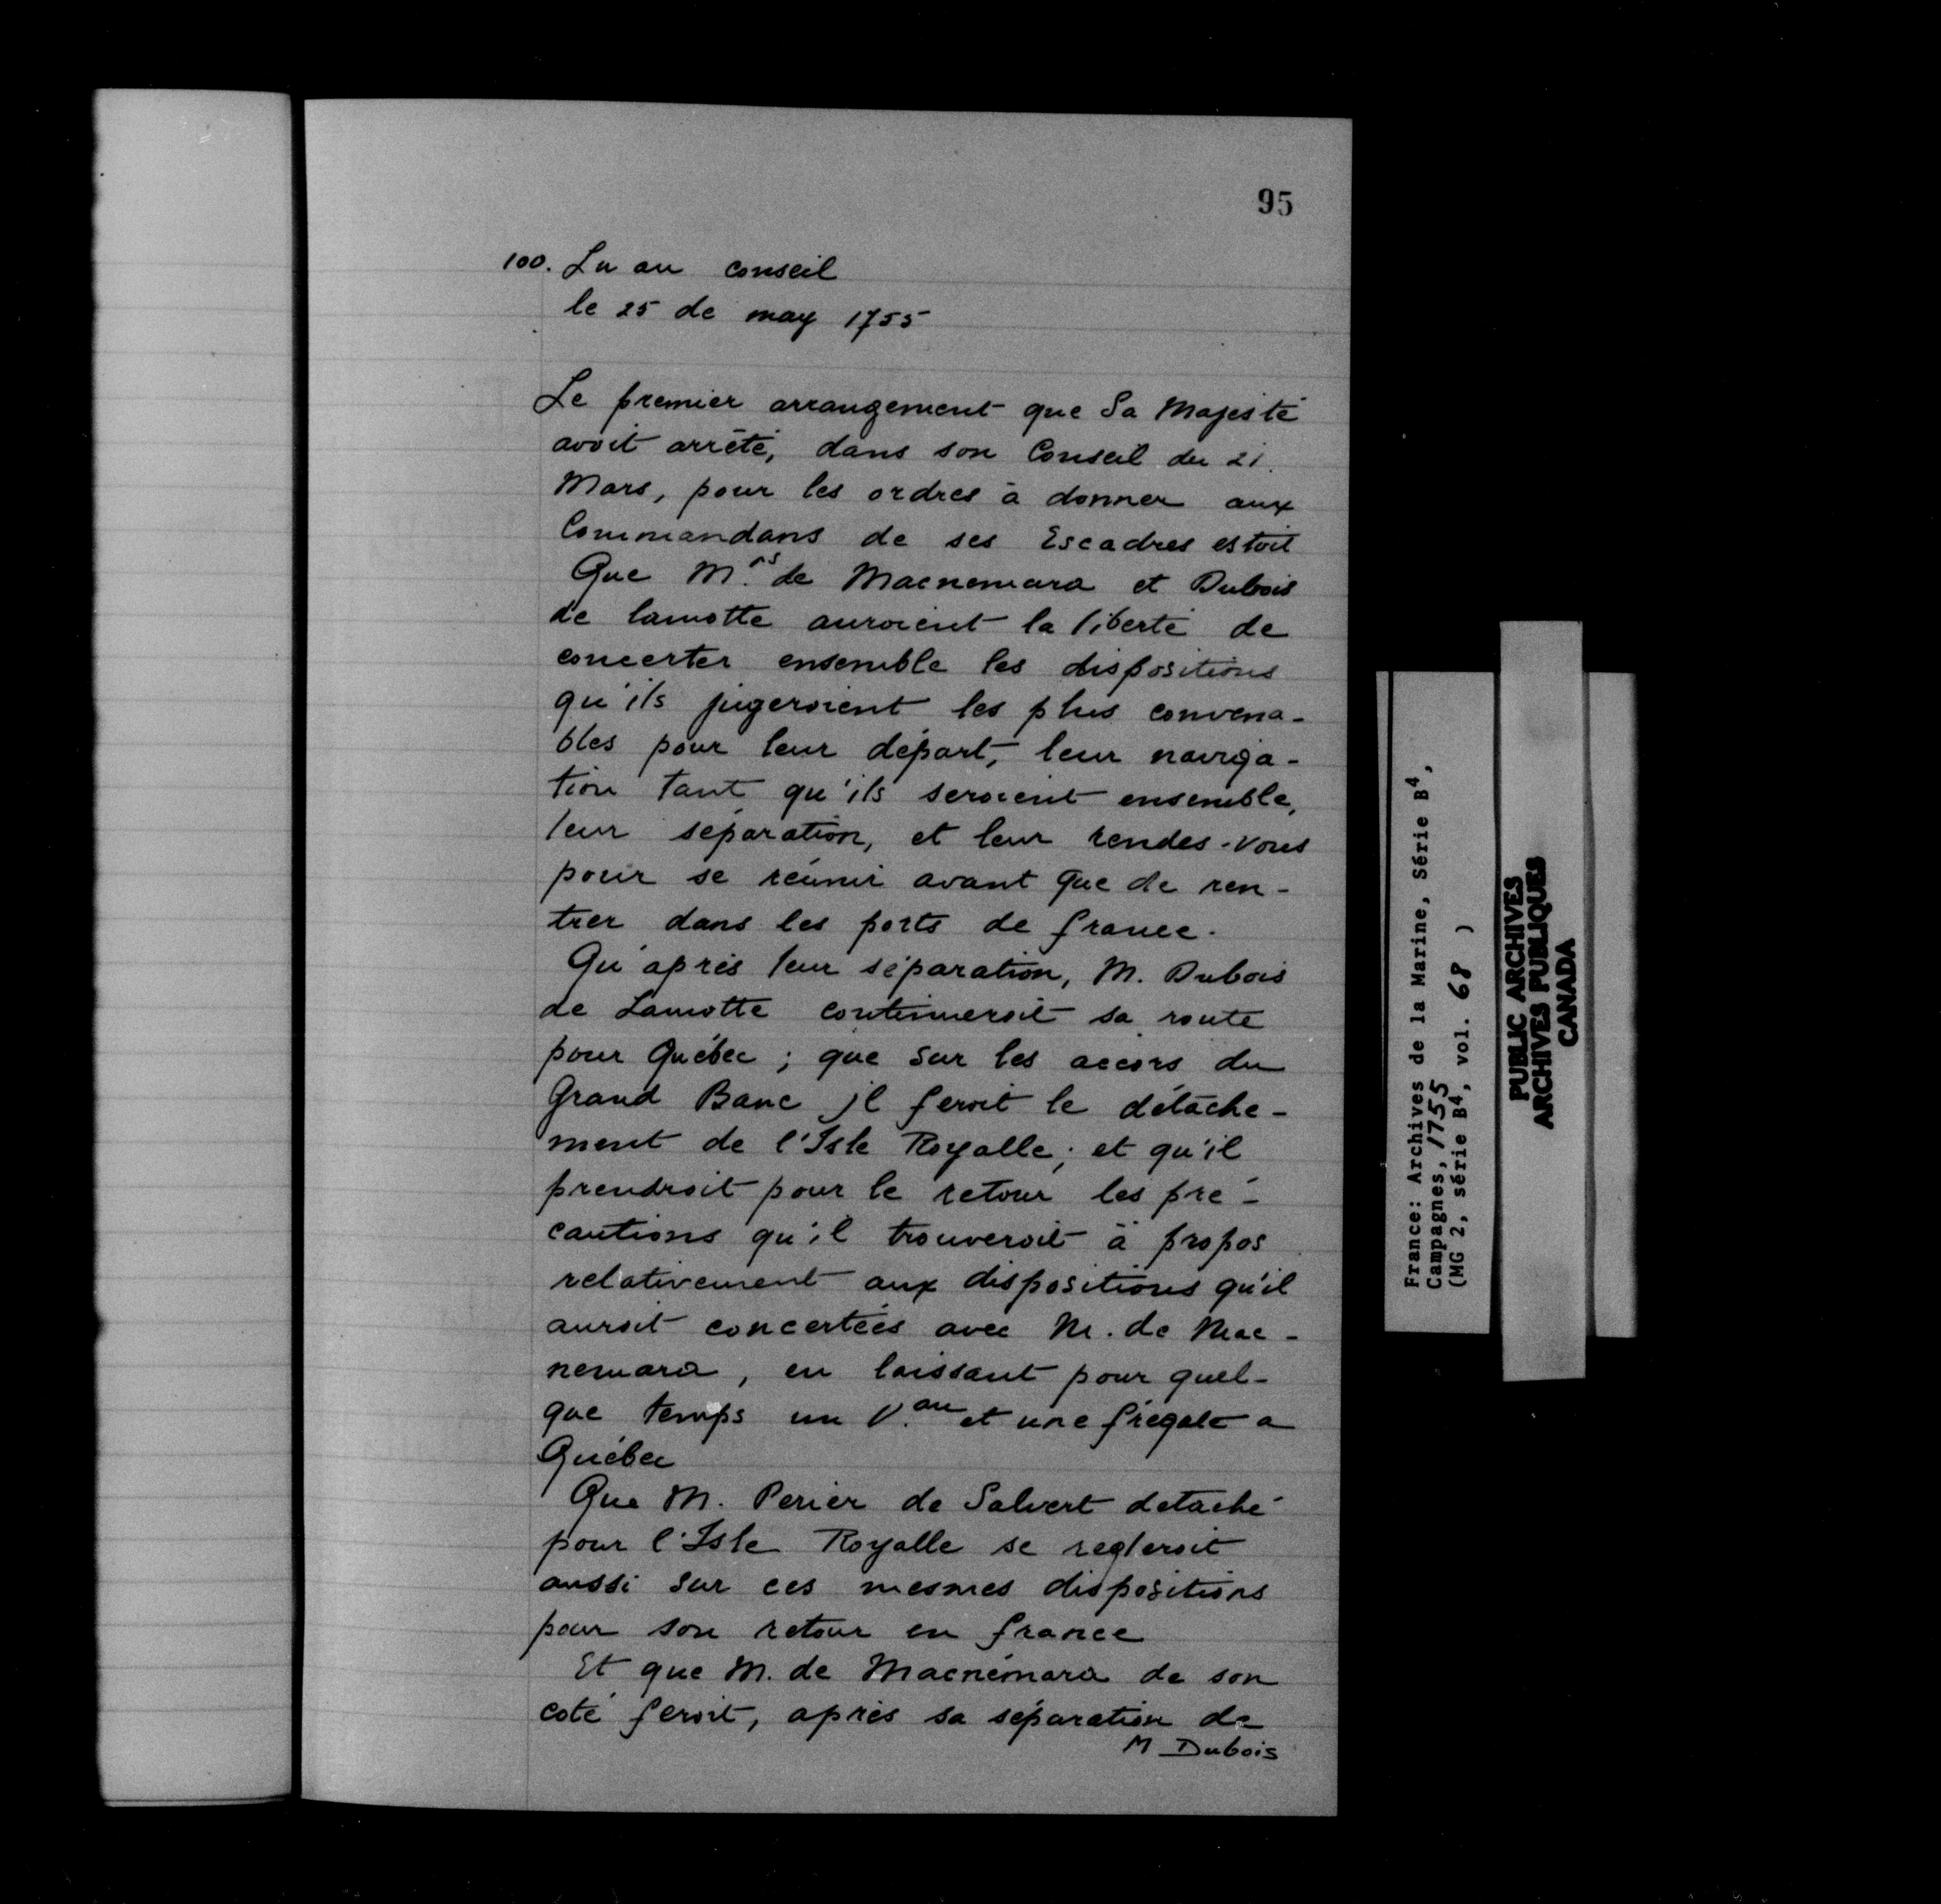 95
100. Lu au conseil
le 25 de may 1755
Le premier arrangement que Sa Majesté
avoit arrêté, dans son Conseil du 21.
Mars, pour les ordres à donner aux
Commandans de ses Escadres estoit
Que M.rs de Macnemara et Dubois
de lamotte auroient la liberté de
concerter ensemble les dispositions
qu'ils jugeroient les plus convena-
bles pour leur départ, leur naviga-
tion tant qu'ils seroient ensemble,
leur séparation, et leur rendes-vous
pour se réunir avant que de ren-
trer dans les ports de france.
Qu'après leur séparation, M. Dubois
de Lamotte continueroit sa route
pour Québec ; que sur les accors du
Grand Banc il feroit le détache-
ment de l'Isle Royalle ; et qu'il
prendroit pour le retour les pré-
cautions qu'il trouveroit à propos
relativement aux dispositions qu'il
auroit concertées avec M. de Mac-
nemara, en laissant pour quel-
que temps un V.au et une frégate a
Québec
Que M. Perier de Salvert detaché
pour l'Isle Royalle se regleroit
aussi sur ces mesmes dispositions
pour son retour en france
Et que M. de Macnémara de son
coté feroit, après sa séparation de
M Dubois
France: Archives de la Marine, Série B4,
Campagnes, 1755
(MG 2, série B4, vol. 68 )
PUBLIC ARCHIVES
ARCHIVES PUBLIQUES
CANADA